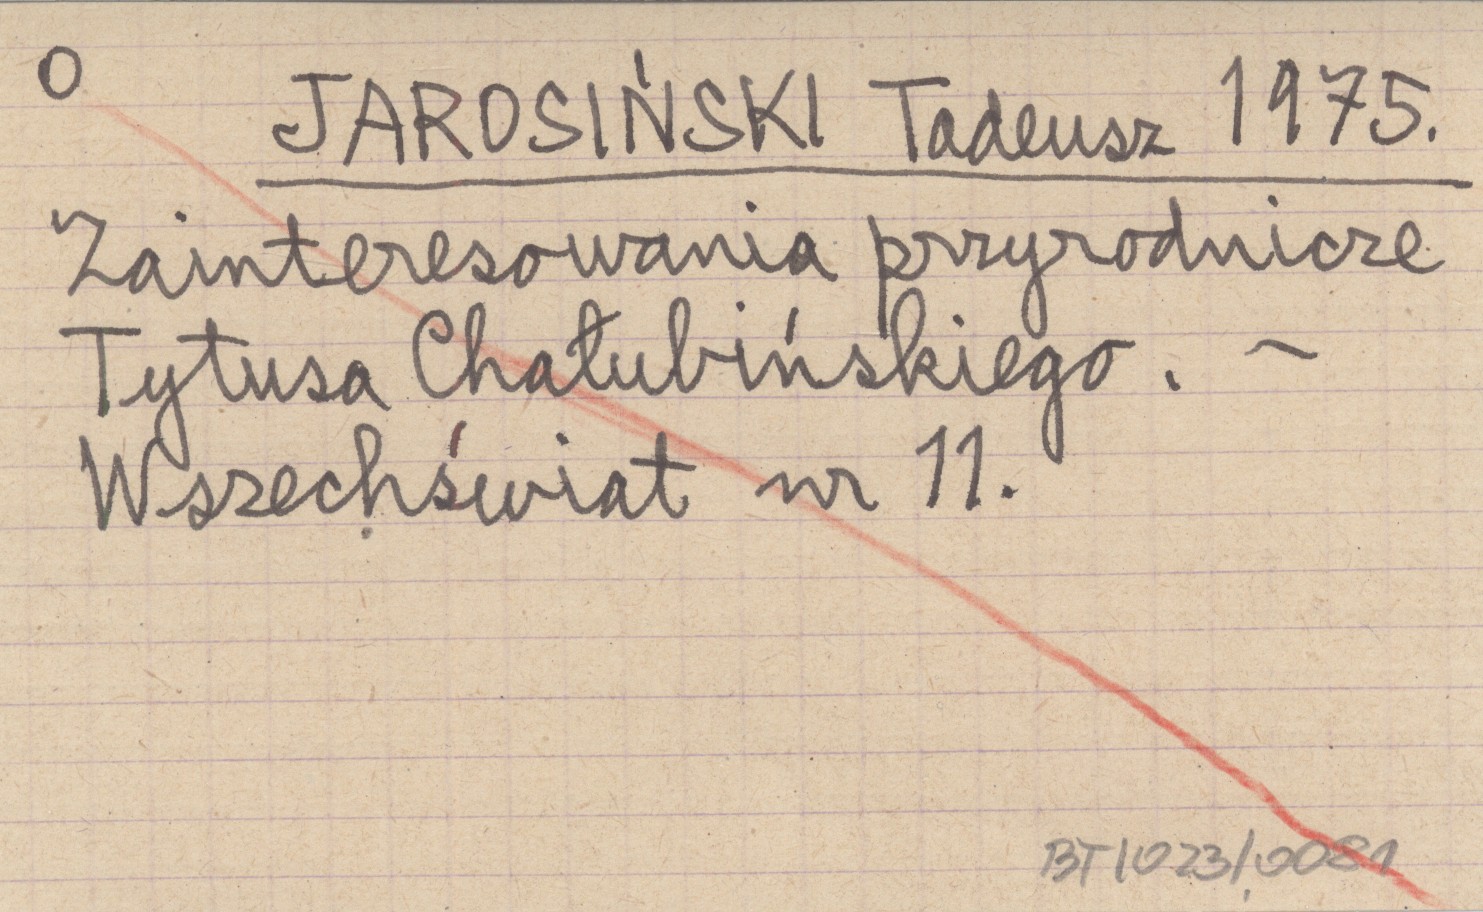 O
JAROSIŃSKI Tadeusz 1975.
Zainteresowania przyrodnicze
Tytusa Chałubińskiego. ~
Wszechświat nr 11.
BT/023/0081